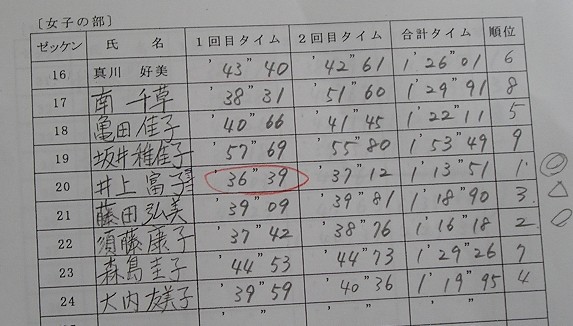 〔女子の部〕
ゼッケン 氏 名 1回目タイム 2回目タイム 合計タイム 順位
16 真川 好美 '43"40 '42"61 1'26"01 6
17 南 千草 '38"31 '51"60 1'29"91 8
18 亀田 佳子 '40"66 '41"45 1'22"11 5
19 坂井 稚佳子 '57"69 '55"80 1'53"49 9
20 井上 富子 '36"39 '37"12 1'13"51 1
21 藤田 弘美 '39"09 '39"81 1'18"90 3
22 須藤 康子 '37"42 '38"76 1'16"18 2
23 森島 圭子 '44"53 '44"73 1'29"26 7
24 大内 友美子 '39"59 '40"36 1'19"95 4
' " ' " ' "